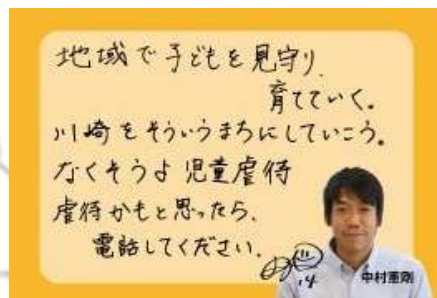 地域で子どもを見守り、
育てていく。
川崎をそういうまちにしていこう。
なくそうよ 児童虐待
虐待かもと思ったら、
電話してください。
14
中村憲剛